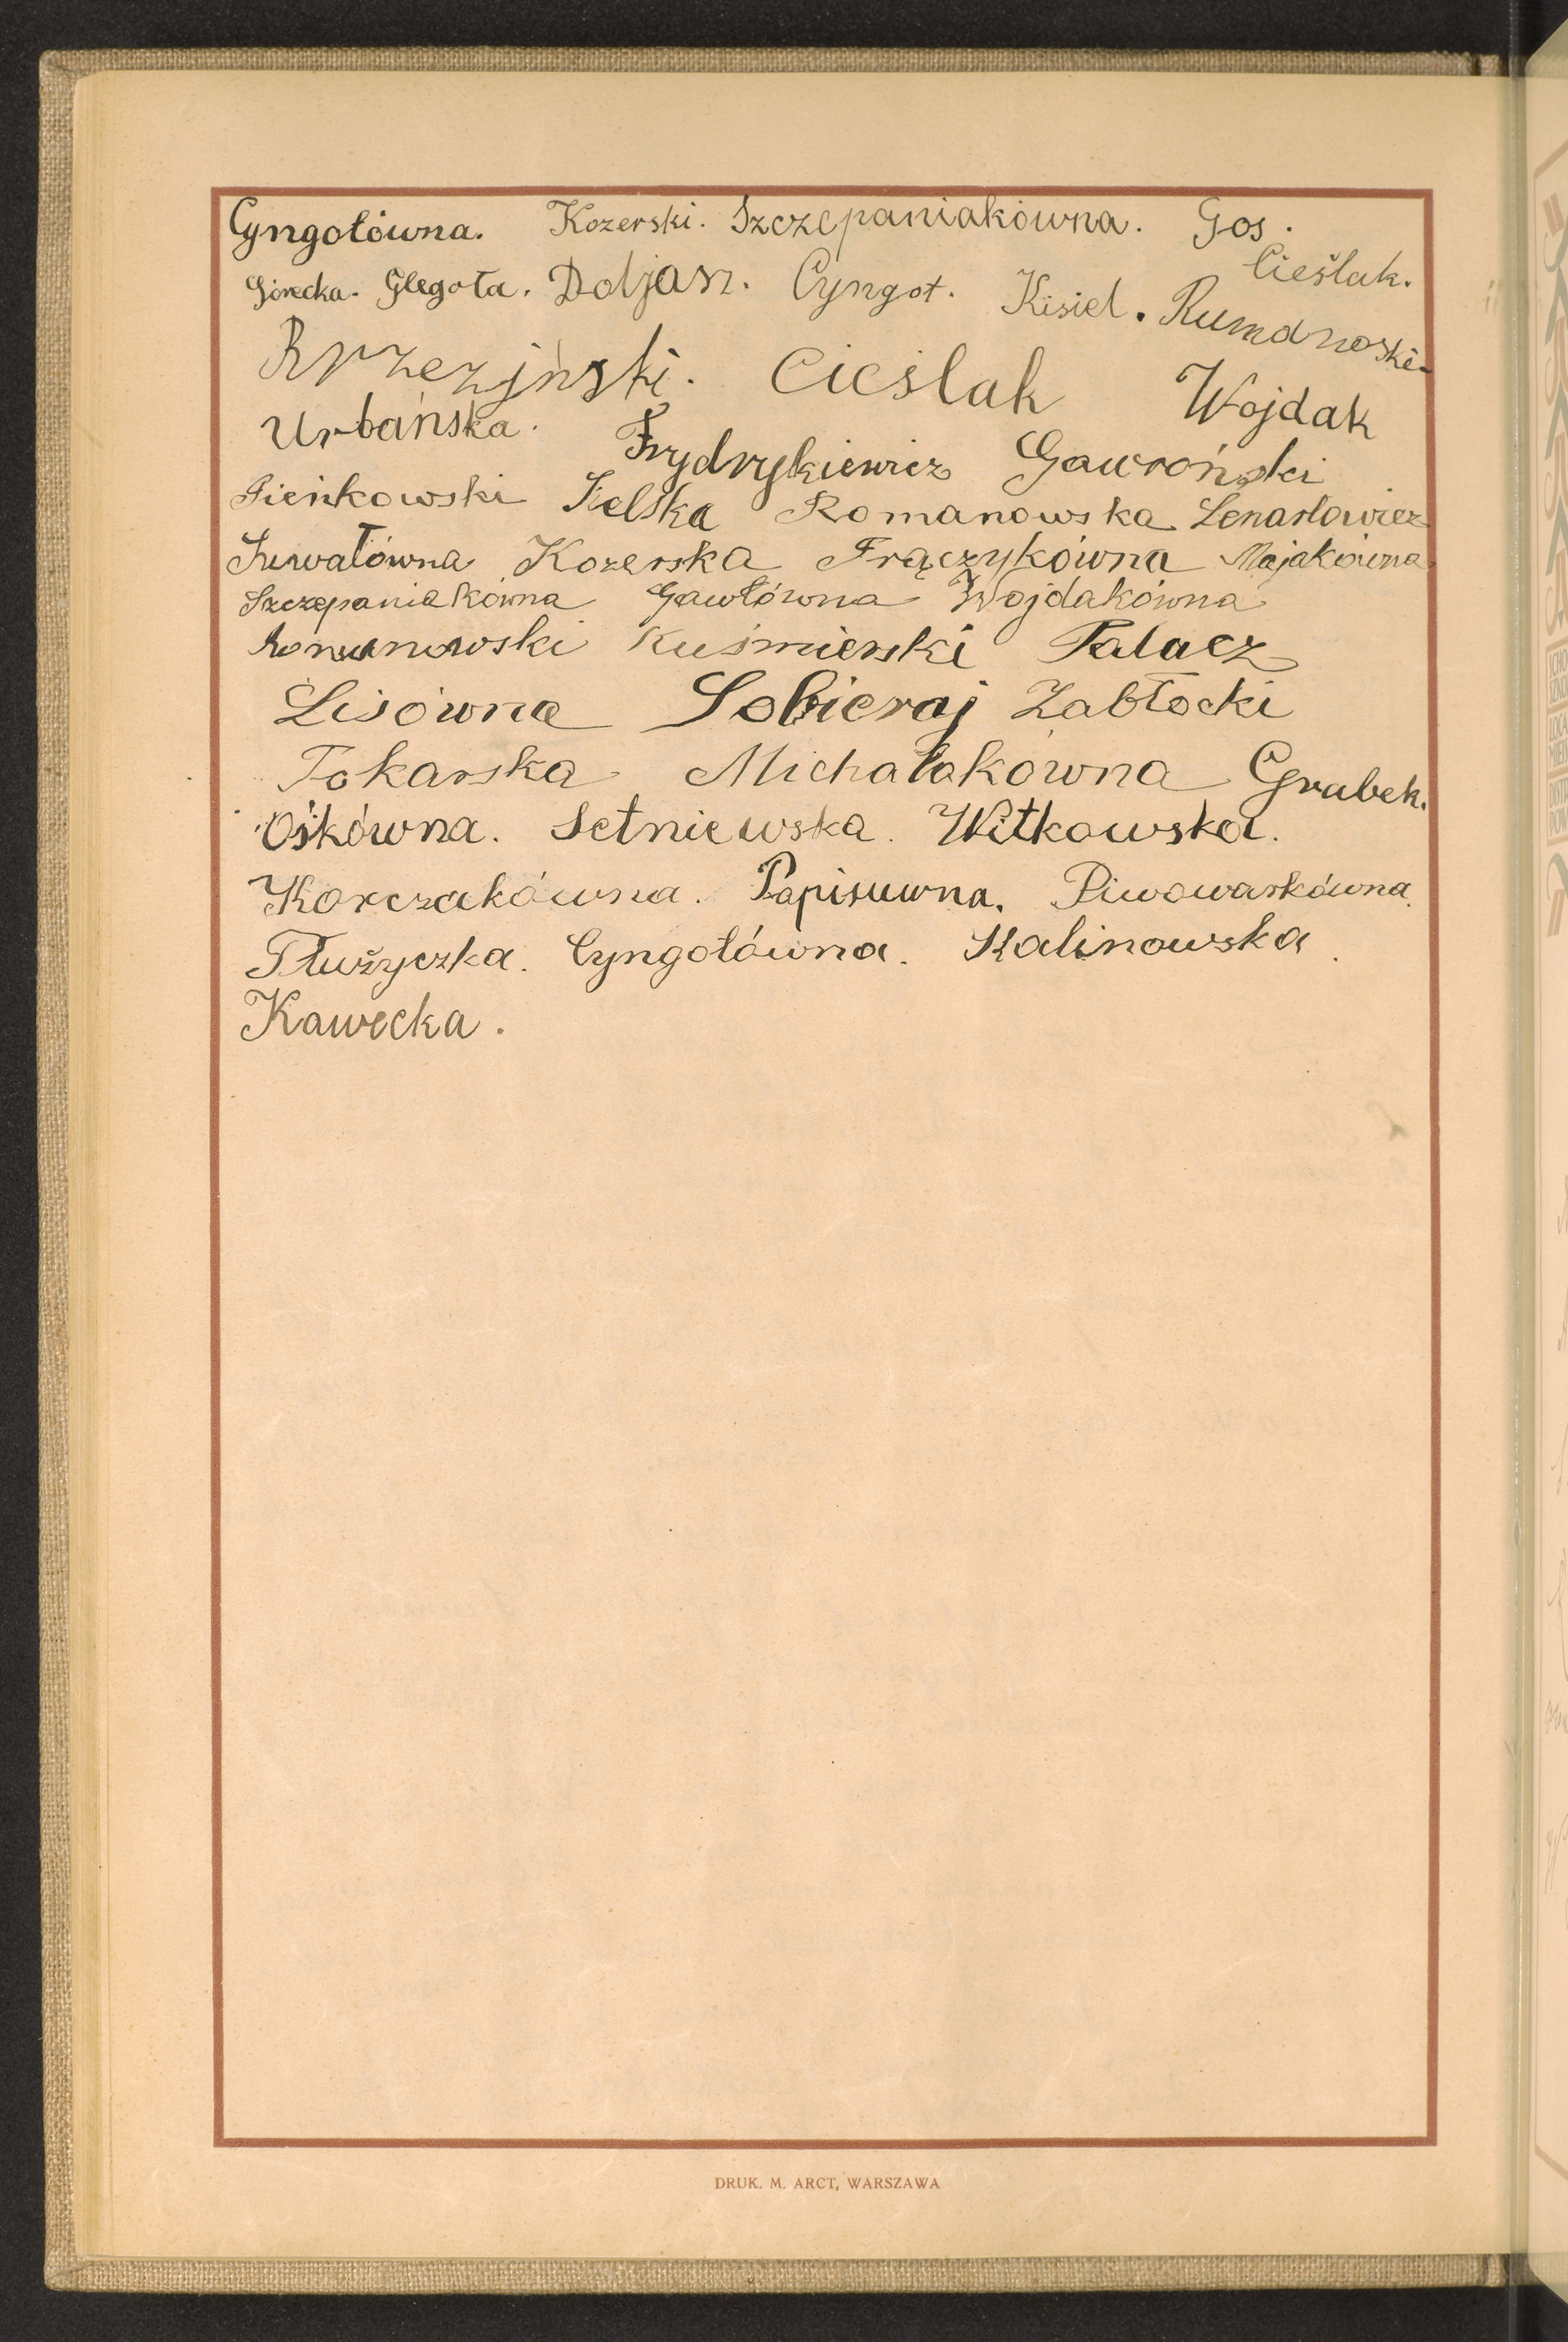 Cyngotówna. Kozerski. Szczepaniakówna. Gos.
Cieślak.
Górecka. Glegoła. Doljan. Cyngot. Kisiel. Rumanoski
Brzezjński. Cieślak Wojdak
Urbańska. Frydrykiewicz Gawroński
Pieńkowski Kelska Romanowska Lenartowicz
Suwałówna Kozerska Frączykówna Majakówna
Szczepaniakówna Gawłówna Wojdakówna
Romanowski Kuśmierski Palacz
Lisówna Sobieraj Zabłocki
Tokarska Michalakówna Grabek.
Ośkówna. Setniewska. Witkowska.
Korczakówna. Papisuwna. Piwowarkówna.
Tłużyczka. Cyngotówna. Kalinowska.
Kawecka.
DRUK. M. ARCT, WARSZAWA